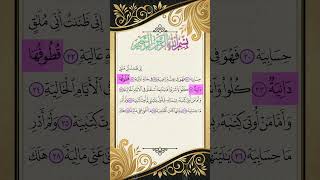 بِسْمِ ٱللَّهِ ٱلرَّحْمَٰنِ ٱلرَّحِيمِ
إِنِّي ظَنَنتُ أَنِّي مُلَٰقٍ
حِسَابِيَهْ ٢٠ فَهُوَ فِي عِيشَةٍ رَّاضِيَةٍ ٢١ فِي جَنَّةٍ عَالِيَةٍ ٢٢ قُطُوفُهَا
دَانِيَةٌ ٢٣ كُلُوا۟ وَٱشْرَبُوا۟ هَنِيٓـًٔۢا بِمَآ أَسْلَفْتُمْ فِي ٱلْأَيَّامِ ٱلْخَالِيَةِ ٢٤
وَأَمَّا مَنْ أُوتِيَ كِتَٰبَهُۥ بِشِمَالِهِۦ فَيَقُولُ يَٰلَيْتَنِي لَمْ أُوتَ كِتَٰبِيَهْ ٢٥ وَلَمْ أَدْرِ
مَا حِسَابِيَهْ ٢٦ يَٰلَيْتَهَا كَانَتِ ٱلْقَاضِيَةَ ٢٧ مَآ أَغْنَىٰ عَنِّي مَالِيَهْ ٢٨ هَلَكَ